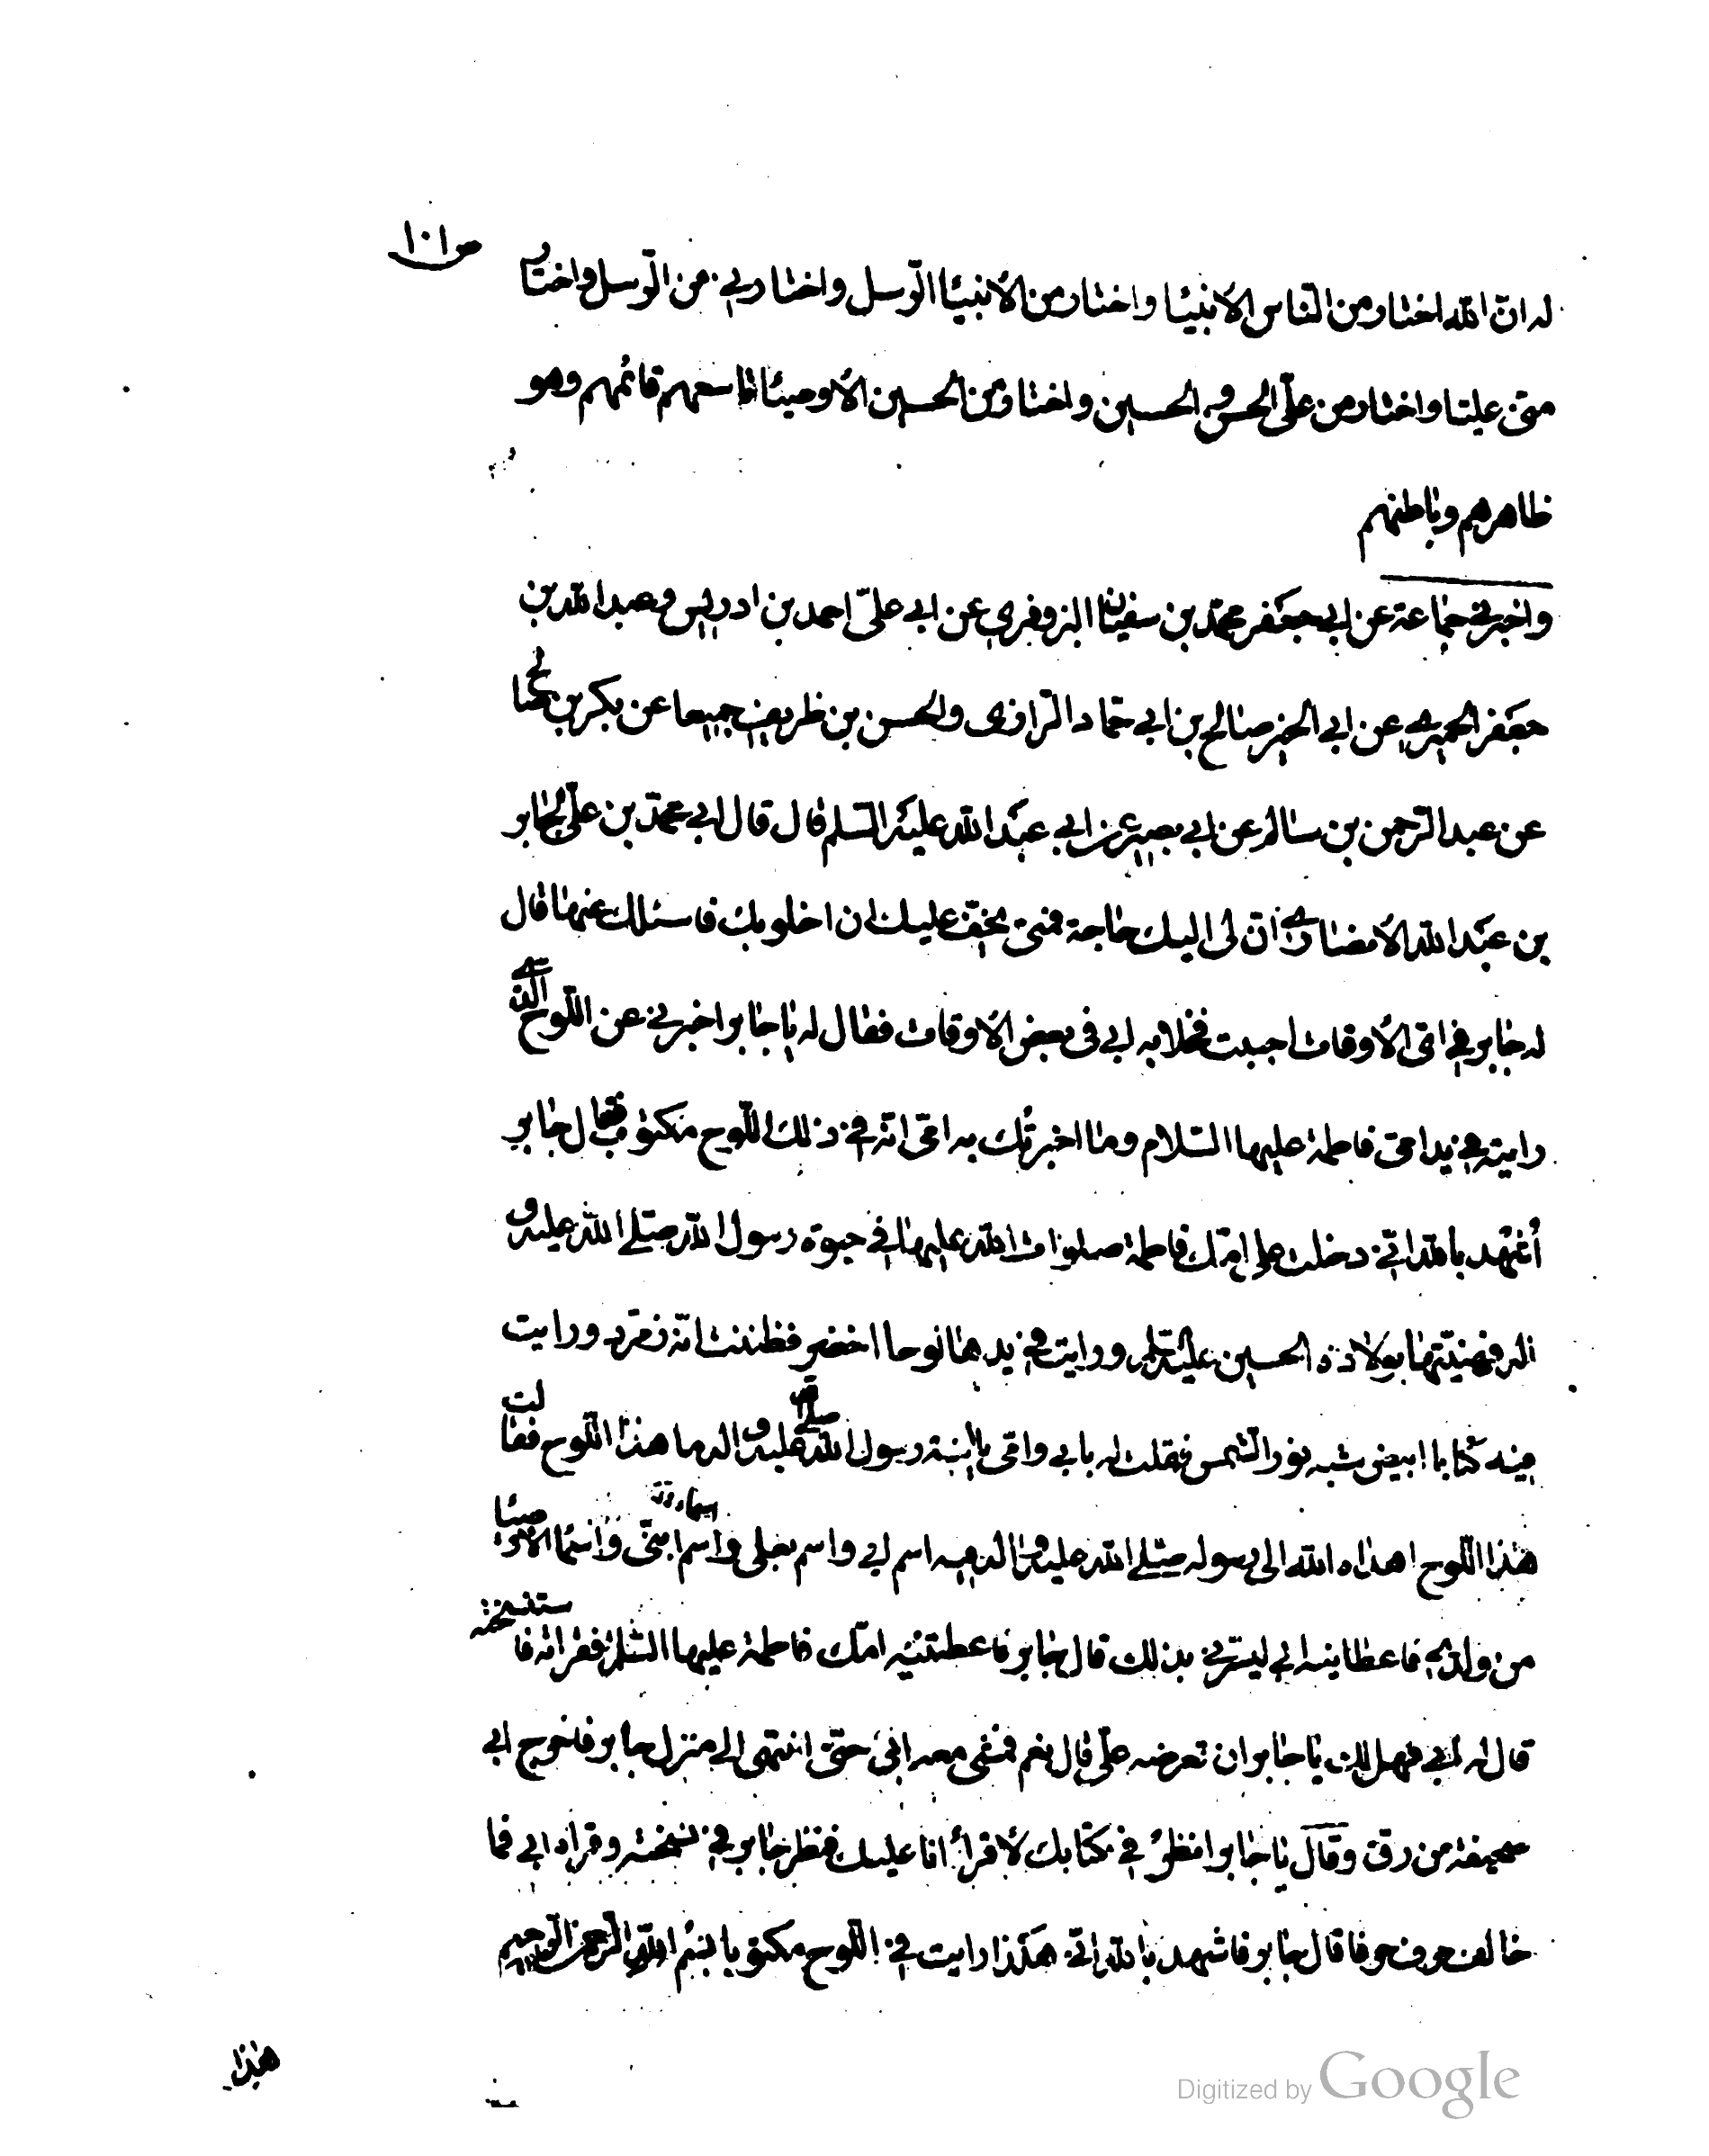 ص ١٠١
له ان الله اختار من الناس الأنبيا واختار من الأنبيا الرسل واختارني من الرسل واختار
منّي عليّا واختار من عليّ الحسن والحسين واختار من الحسين الأوصيا تاسعهم قائمهم وهو
ظاهرهم وباطنهم
واخبرني جماعة عن ابي جعفر محمّد بن سفيان البزوفري عن ابي عليّ احمد بن ادريس وعبد الله بن
جعفر الحميري عن ابي الخير صالح بن ابي حمّاد الرازي والحسن بن ظريف جميعا عن بكر بن صالح
عن عبد الرحمن بن سالم عن ابي بصير عن ابي عبد الله عليه السلم قال قال ابي محمّد بن عليّ لجابر
بن عبد الله الأنصاري انّ لي اليك حاجة فمتى يخفّ عليك ان اخلو بك فاسئلك عنها قال
له جابر في ايّ الأوقات احببت فخلا به ابي في بعض الأوقات فقال له يا جابر اخبرني عن اللّوح الّذي
رايته في يد امّي فاطمة عليها السّلام وما اخبرتك به امّي انّه في ذلك اللّوح مكتوب فقال جابر
أشهد بالله انّي دخلت على امّك فاطمة صلوات الله عليها في حيوة رسول الله صلّى الله عليه و
اله فهنيّتها بولادة الحسين عليه السّلم ورايت في يدها لوحا اخضر فظننت انّه زمرّد ورايت
فيه كتابا ابيض شبه نور الشّمس فقلت له بابي وامّي يا ابنة رسول الله صلّى الله عليه واله ما هذا اللّوح فقالت
هذا اللّوح اهداه الله الى رسوله صلّى الله عليه واله فيه اسم ابي واسم بعلي واسم ابنيّ واسما الأوصيا
من ولدي فاعطانيه ابي ليسرّني بذلك قال جابر فاعطتنيه امّك فاطمة عليها السّلم فقراته فاستنسخته
قال له ابي فهل لك يا جابر ان تعرضه عليّ قال نعم فمشى معه ابي حتّى انتهى الى منزل جابر فاخرج ابي
صحيفة من رق وقال يا جابر انظر في كتابك لأقرأ انا عليك فنظر جابر في نسخته وقراه ابي فما
خالف حرف حرفا قال جابر فاشهد بالله انّي هكذا رايت في اللّوح مكتوبا بسم الله الرّحمن الرّحيم
هذا
Digitized by Google